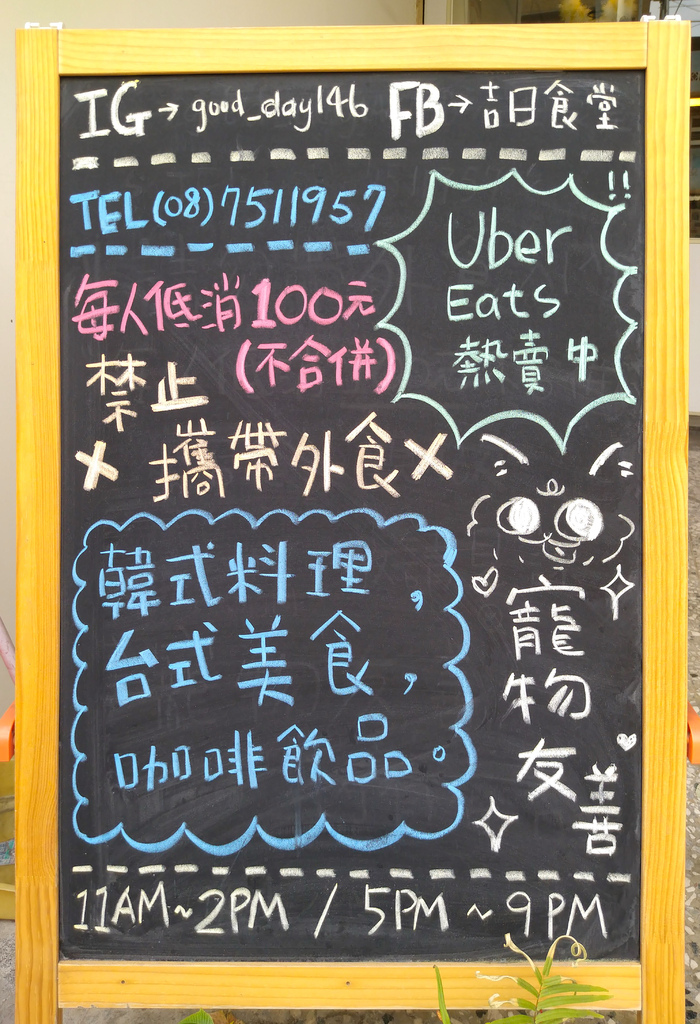 IG→good_day146 FB→吉日食堂
TEL(08)7511957
!!
Uber
Eats
熱賣中
每人低消100元
(不合併)
禁止
×攜帶外食×
韓式料理,
台式美食,
咖啡飲品。
寵物
友善
11AM~2PM / 5PM~9PM